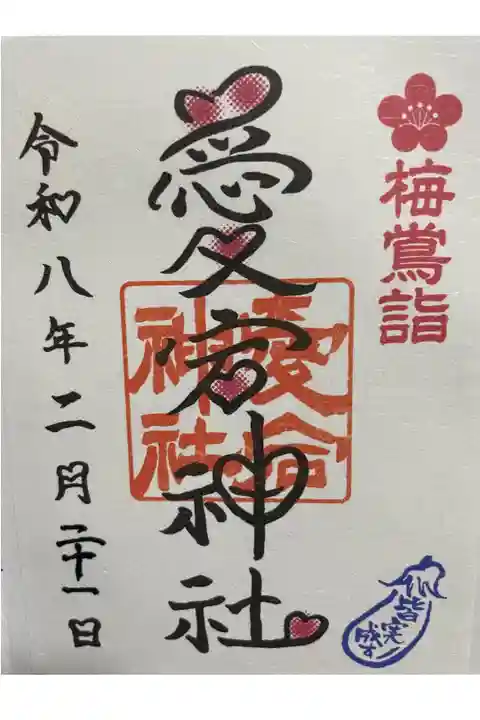 梅鶯詣
愛宕神社
愛宕
神社
令和八年二月二十一日
皆実
成す